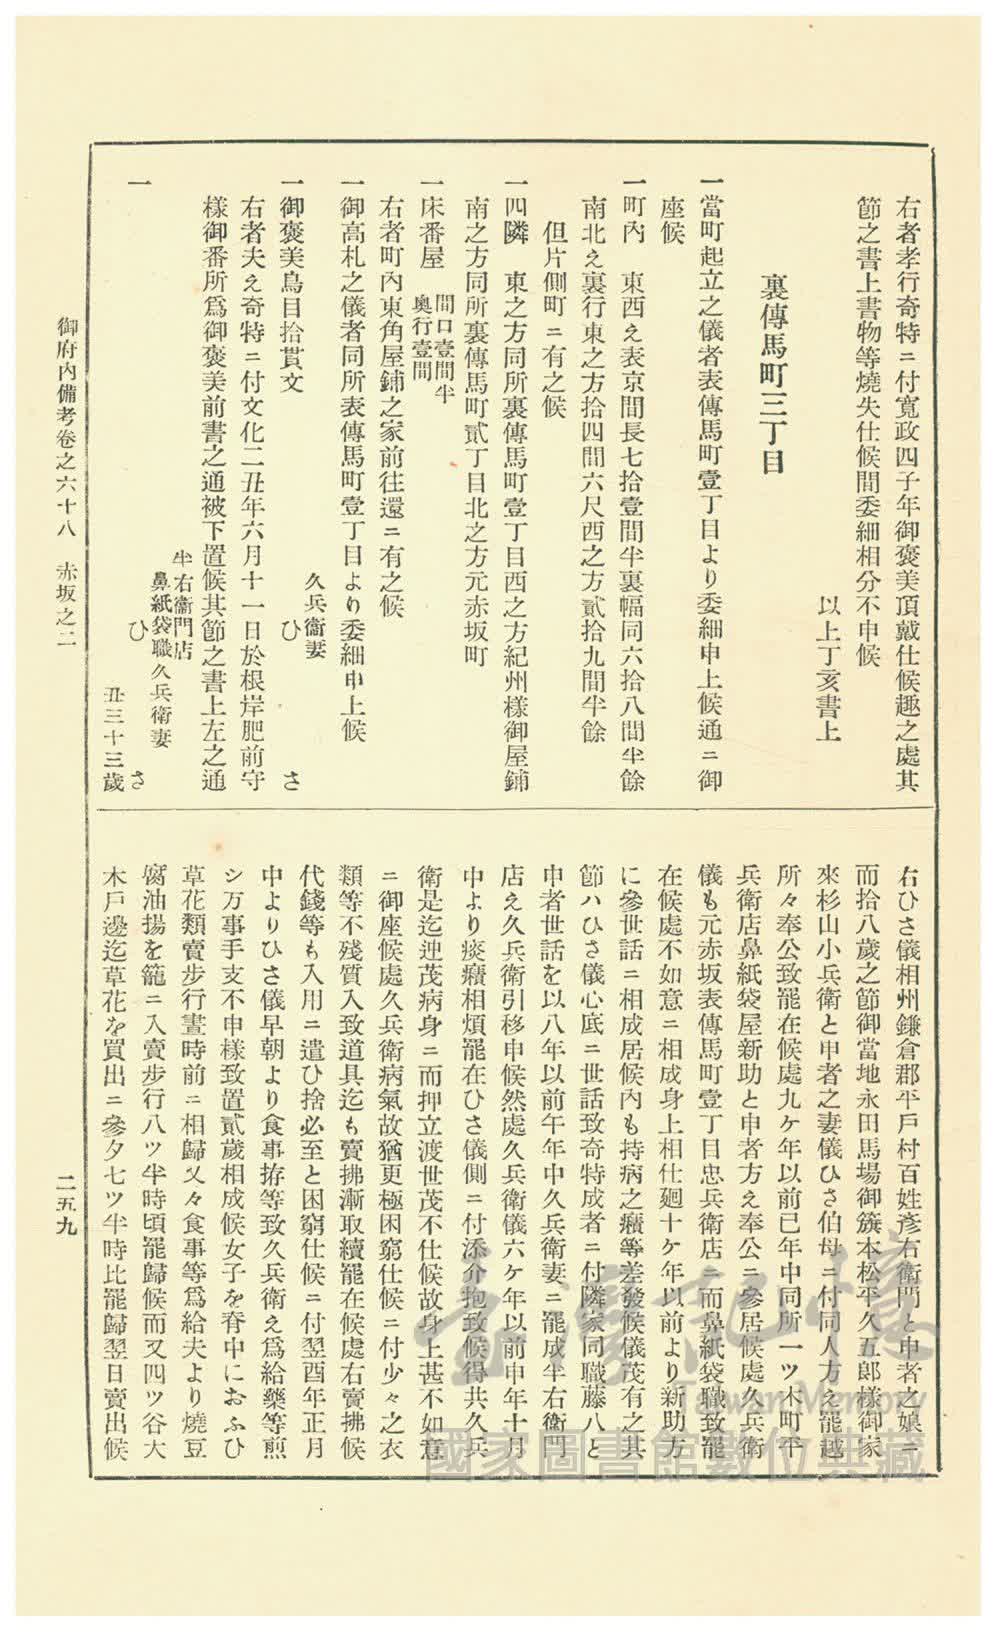 右者孝行奇特ニ付寬政四子年御褒美頂戴仕候趣之處其
節之書上書物等燒失仕候間委細相分不申候
以上丁亥書上
裏傳馬町三丁目
一當町起立之儀者表傳馬町壹丁目より委細申上候通ニ御
座候
一町內　東西え表京間長七拾壹間半裏幅同六拾八間半餘
南北え裏行東之方拾四間六尺西之方貳拾九間半餘
但片側町ニ有之候
一四隣　東之方同所裏傳馬町壹丁目西之方紀州樣御屋鋪
南之方同所裏傳馬町貳丁目北之方元赤坂町
一床番屋　間口壹間半
奧行壹間
右者町內東角屋鋪之家前往還ニ有之候
一御高札之儀者同所表傳馬町壹丁目より委細申上候
久兵衞妻
一御褒美鳥目拾貫文　ひさ
右者夫え奇特ニ付文化二丑年六月十一日於根岸肥前守
樣御番所爲御褒美前書之通被下置候其節之書上左之通
半右衞門店
鼻紙袋職久兵衞妻
一　ひさ
丑三十三歲
右ひさ儀相州鎌倉郡平戶村百姓彥右衛門と申者之娘ニ
而拾八歲之節御當地永田馬場御籏本松平久五郎樣御家
來杉山小兵衞と申者之妻儀ひさ伯母ニ付同人方え罷越
所々奉公致罷在候處九ケ年以前巳年中同所一ツ木町平
兵衞店鼻紙袋屋新助と申者方え奉公ニ參居候處久兵衞
儀も元赤坂表傳馬町壹丁目忠兵衛店ニ而鼻紙袋職致罷
在候處不如意ニ相成身上相仕廻十ケ年以前より新助方
に參世話ニ相成居候內も持病之癪等差發候儀茂有之其
節ハひさ儀心底ニ世話致奇特成者ニ付隣家同職藤八と
申者世話を以八年以前午年中久兵衞妻ニ罷成半右衞門
店え久兵衞引移申候然處久兵衞儀六ケ年以前申年十月
中より痰癪相煩罷在ひさ儀側ニ付添介抱致候得共久兵
衞是迄迚茂病身ニ而押立渡世茂不仕候故身上甚不如意
ニ御座候處久兵衞病氣故猶更極困窮仕候ニ付少々之衣
類等不殘質入致道具迄も賣拂漸取續罷在候處右賣拂候
代錢等も入用ニ遣ひ捨必至と困窮仕候ニ付翌酉年正月
中よりひさ儀早朝より食事拵等致久兵衞え爲給藥等煎
シ万事手支不申樣致置貳歲相成候女子を脊中におふひ
草花類賣步行晝時前ニ相歸又々食事等爲給夫より燒豆
腐油揚を籠ニ入賣步行八ツ半時頃罷歸候而又四ツ谷大
木戶邊迄草花を買出ニ參夕七ツ半時比罷歸翌日賣出候
御府內備考卷之六十八　赤坂之二
二五九
臺灣記憶
Taiwan Memory
國家圖書館數位典藏